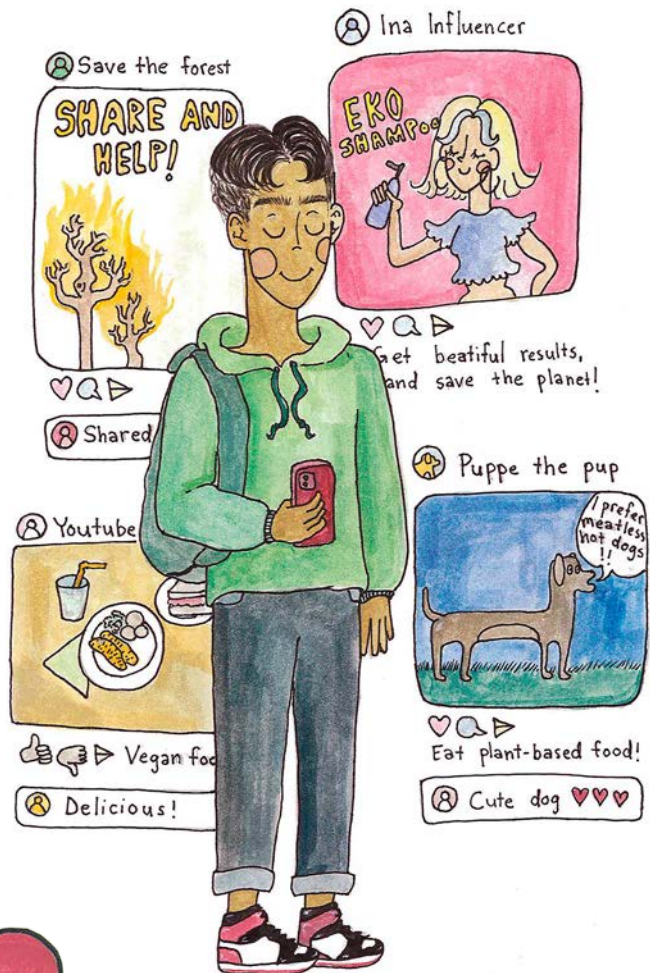 Save the forest
SHARE AND
HELP!
Shared
Ina Influencer
EKO
SHAMPOO
Get beatiful results,
and save the planet!
Youtube
Vegan foo
Delicious!
Puppe the pup
I prefer
meatless
hot dogs
!!
Eat plant-based food!
Cute dog ♥♥♥